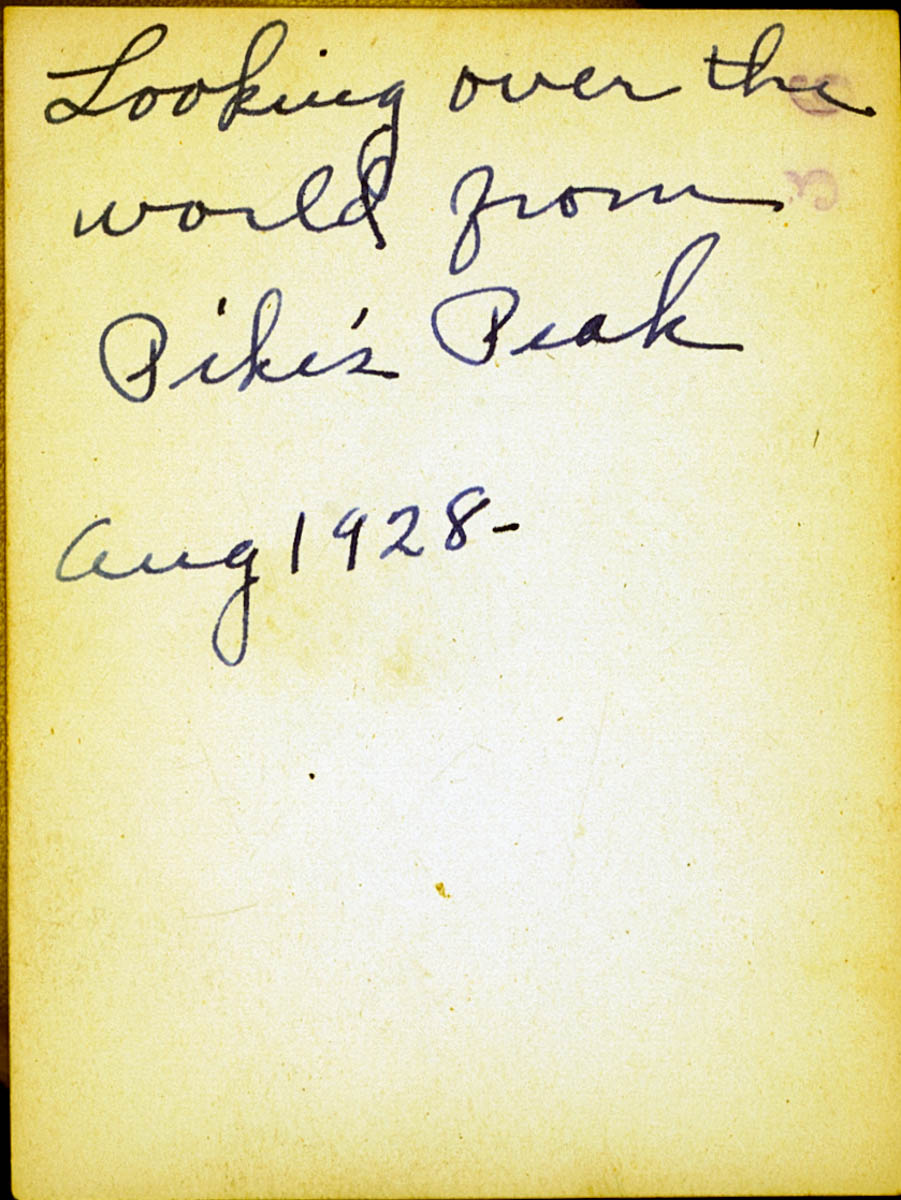 Looking over the
world from
Pike's Peak
Aug 1928-